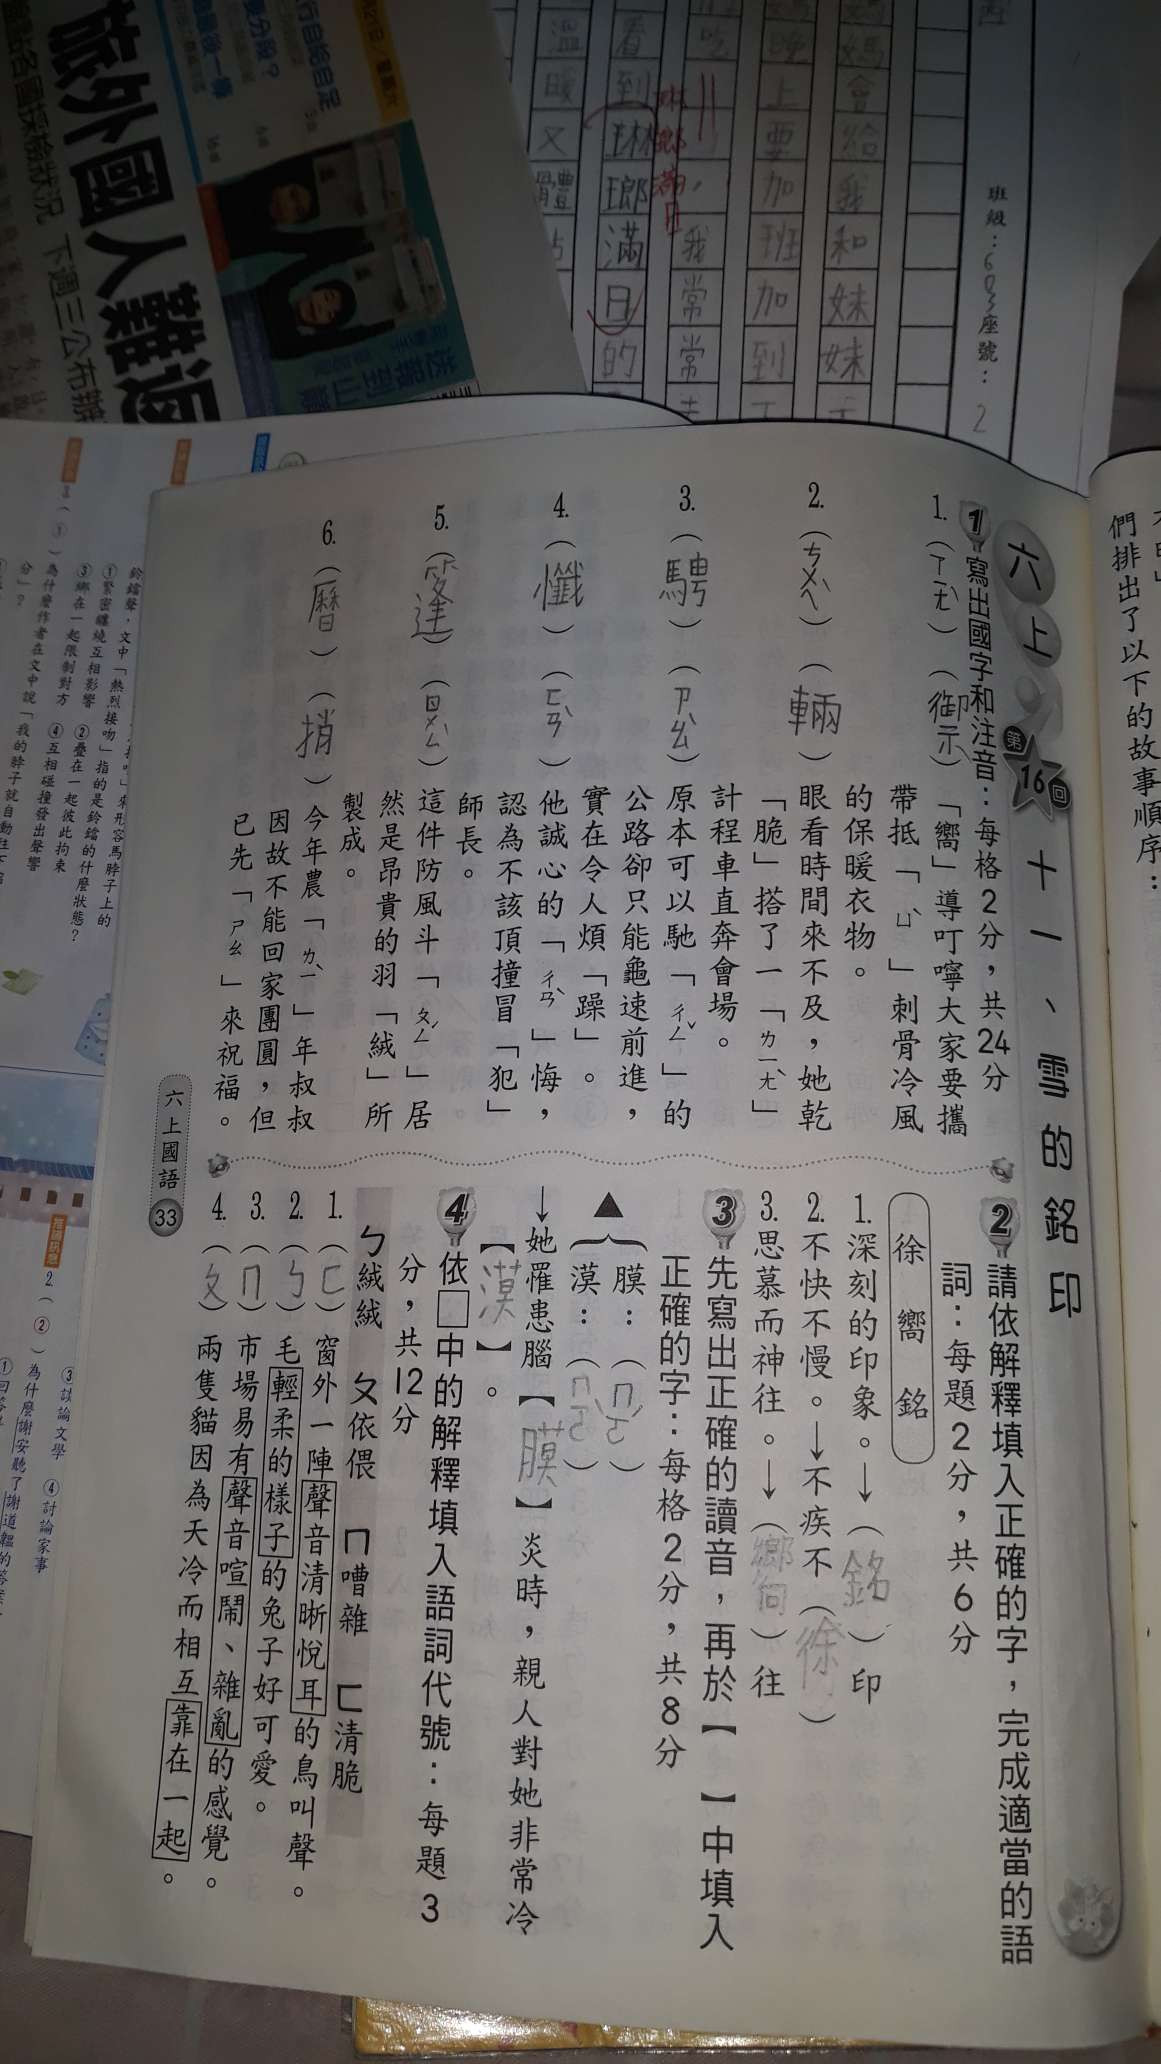 六上
第16回
十一、雪的銘印
1 寫出國字和注音：每格2分，共24分
1.（ㄒㄧㄤˋ）（禦）「嚮」導叮嚀大家要攜
帶抵「ㄩˋ」刺骨冷風
的保暖衣物。
2.（ㄘㄨㄟˋ）（輛）眼看時間來不及，她乾
「脆」搭了一「ㄌㄧㄤˋ」
計程車直奔會場。
3.（騁）（ㄗㄠˋ）原本可以馳「ㄔㄥˇ」的
公路卻只能龜速前進，
實在令人煩「躁」。
4.（懺）（ㄈㄢˋ）他誠心的「ㄔㄢˋ」悔，
認為不該頂撞冒「犯」
師長。
5.（篷）（ㄖㄨㄥˊ）這件防風斗「ㄆㄥˊ」居
然是昂貴的羽「絨」所
製成。
6.（曆）（捎）今年農「ㄌㄧˋ」年叔叔
因故不能回家團圓，但
已先「ㄕㄠ」來祝福。
2 請依解釋填入正確的字，完成適當的語
詞：每題2分，共6分
徐 嚮 銘
1.深刻的印象。→（銘）印
2.不快不慢。→不疾不（徐）
3.思慕而神往。→（嚮）往
3 先寫出正確的讀音，再於【 】中填入
正確的字：每格2分，共8分
▲
膜：（ㄇㄛˊ）
漠：（ㄇㄛˋ）
→她罹患腦【膜】炎時，親人對她非常冷
【漠】。
4 依□中的解釋填入語詞代號：每題3
分，共12分
ㄅ絨絨 ㄆ依偎 ㄇ嘈雜 ㄈ清脆
1.（ㄈ）窗外一陣聲音清晰悅耳的鳥叫聲。
2.（ㄅ）毛輕柔的樣子的兔子好可愛。
3.（ㄇ）市場易有聲音喧鬧、雜亂的感覺。
4.（ㄆ）兩隻貓因為天冷而相互靠在一起。
六上國語 33
們排出了以下的故事順序：
班級：603座號：2
媽會給我和妹妹
晚上要加班加到
吃
我常常
看到琳瑯滿目的
琳瑯滿目
溫暖又體
旅外國人難返
下週三公布
①緊密纏繞互相影響 ②疊在一起彼此拘束
③綁在一起限制對方 ④互相碰撞發出聲響
為什麼作者在文中說「我的脖子就自動往下
分」？
2.（②）為什麼謝安聽了謝道韞的答案，
③談論文學 ④討論家事